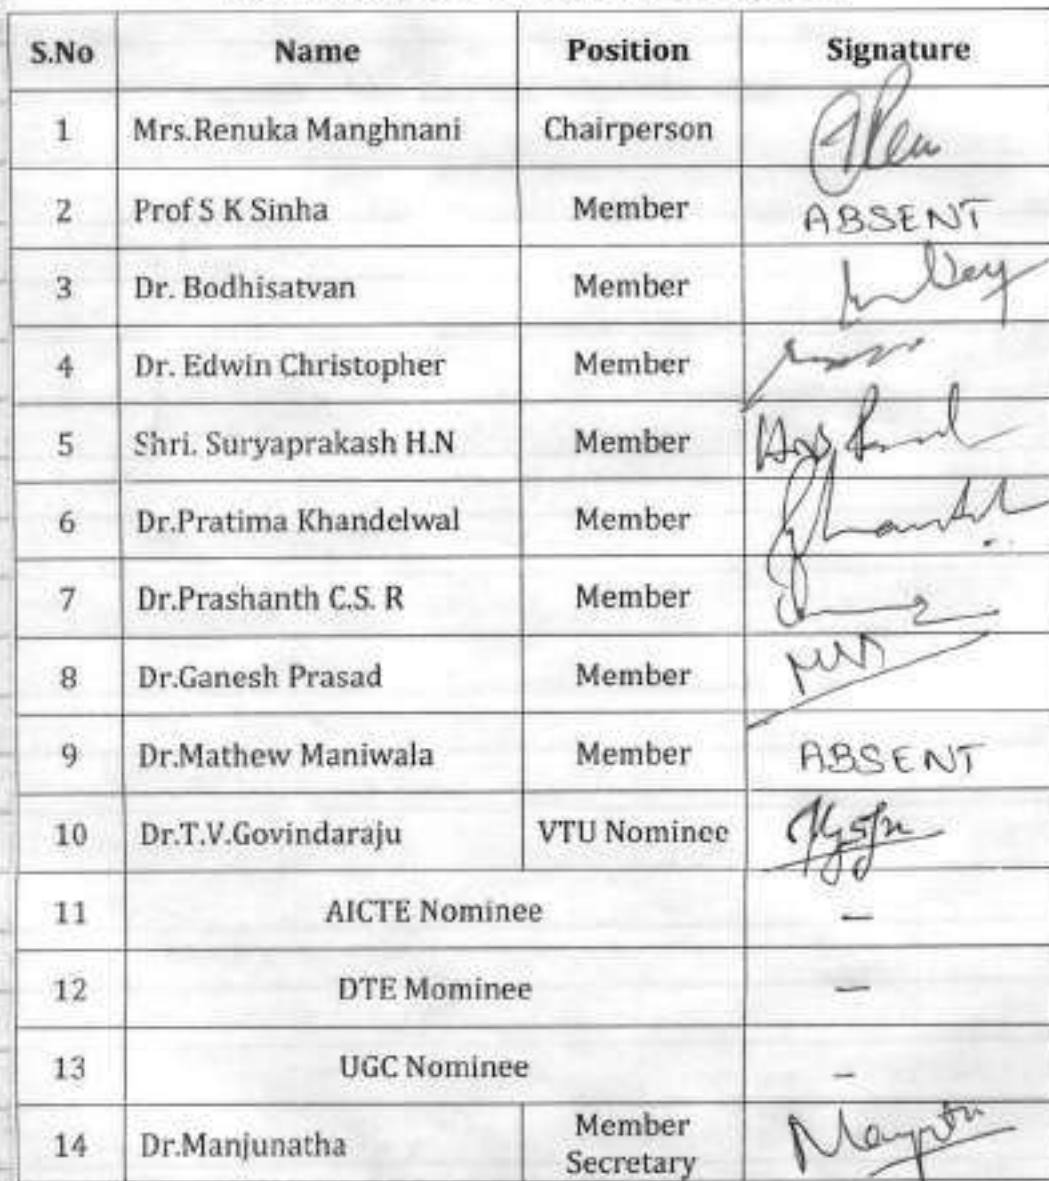 S.No Name Position Signature
1 Mrs.Renuka Manghnani Chairperson
2 Prof S K Sinha Member ABSENT
3 Dr. Bodhisatvan Member
4 Dr. Edwin Christopher Member
5 Shri. Suryaprakash H.N Member
6 Dr.Pratima Khandelwal Member
7 Dr.Prashanth C.S. R Member
8 Dr.Ganesh Prasad Member
9 Dr.Mathew Maniwala Member ABSENT
10 Dr.T.V.Govindaraju VTU Nominee
11 AICTE Nominee –
12 DTE Mominee –
13 UGC Nominee –
14 Dr.Manjunatha Member
Secretary